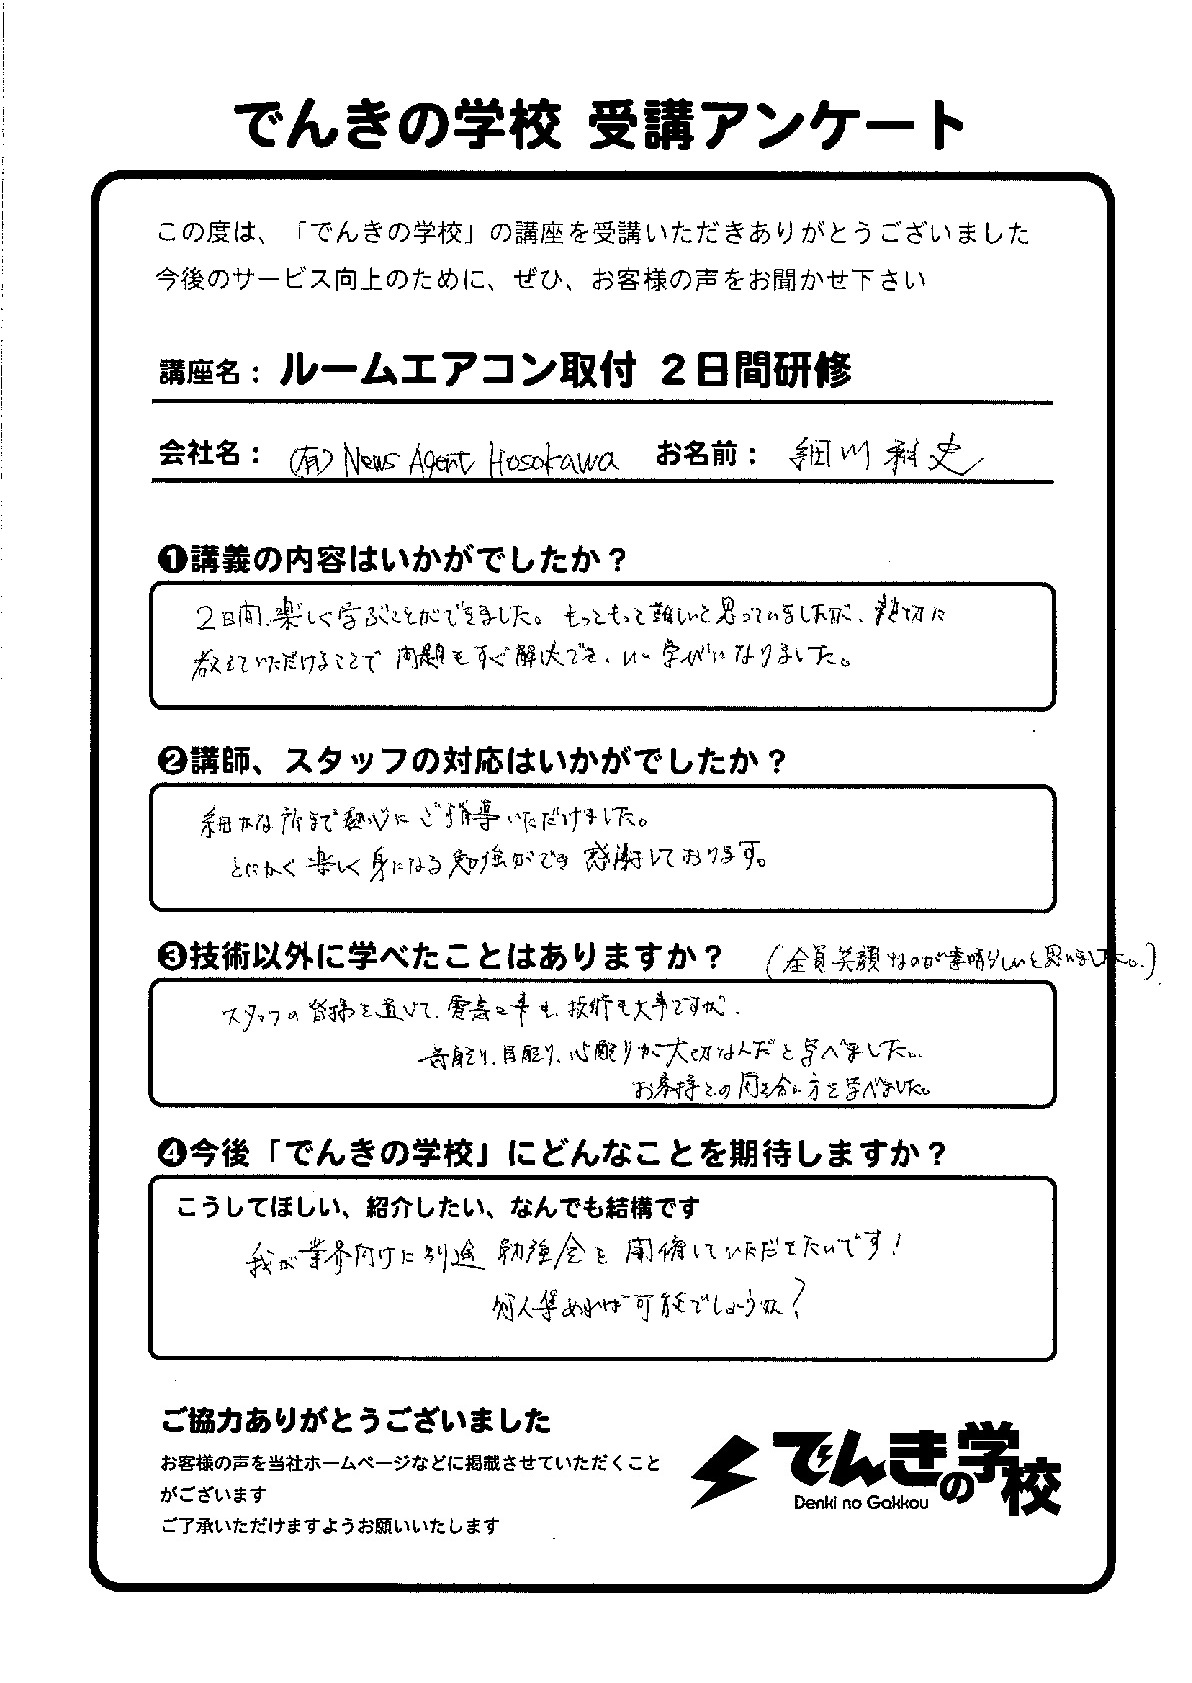 でんきの学校 受講アンケート
この度は、「でんきの学校」の講座を受講いただきありがとうございました
今後のサービス向上のために、ぜひ、お客様の声をお聞かせ下さい
講座名： ルームエアコン取付 ２日間研修
会社名： (有) News Agent Hosokawa お名前： 細川 科史
❶講義の内容はいかがでしたか？
2日間、楽しく学ぶことができました。もっともっと難しいと思っていましたが、親切に
教えていただけることで 問題もすぐ解決でき、いい学びになりました。
❷講師、スタッフの対応はいかがでしたか？
細かな所まで熱心にご指導いただけました。
とにかく楽しく身になる勉強ができ 感謝しております。
❸技術以外に学べたことはありますか？ (全員笑顔なのが素晴らしいと思いました。)
スタッフの皆様を通じて、 技術も大事ですが、
気配り、目配り、心配りが大切なんだと学べました。
お客様との向き合い方を学べました。
❹今後「でんきの学校」にどんなことを期待しますか？
こうしてほしい、紹介したい、なんでも結構です
我が業界向けに別途 勉強会を開催していただきたいです！
何人集めれば可能でしょうか？
ご協力ありがとうございました
お客様の声を当社ホームページなどに掲載させていただくこと
がございます
ご了承いただけますようお願いいたします
でんきの学校
Denki no Gakkou